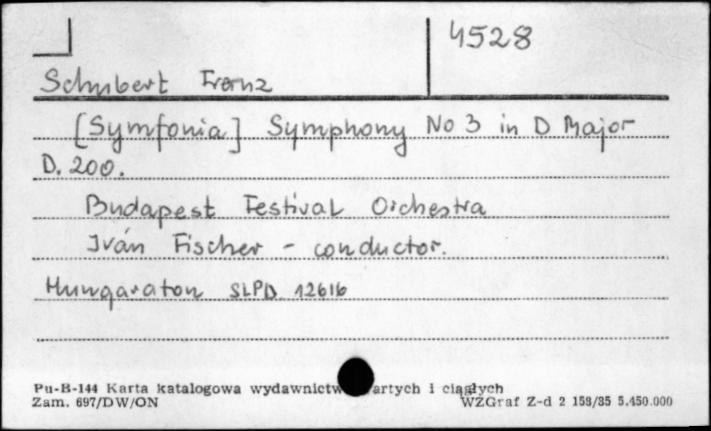 4528
Schubert Franz
[Symfonia] Symphony No 3 in D Major
D. 200.
Budapest Festival Orchestra
Iván Fischer - conductor.
Hungaraton SLPD 12616
Pu-B-144 Karta katalogowa wydawnictw artych i ciągłych
Zam. 697/DW/ON WZGraf Z-d 2 158/85 5.450.000